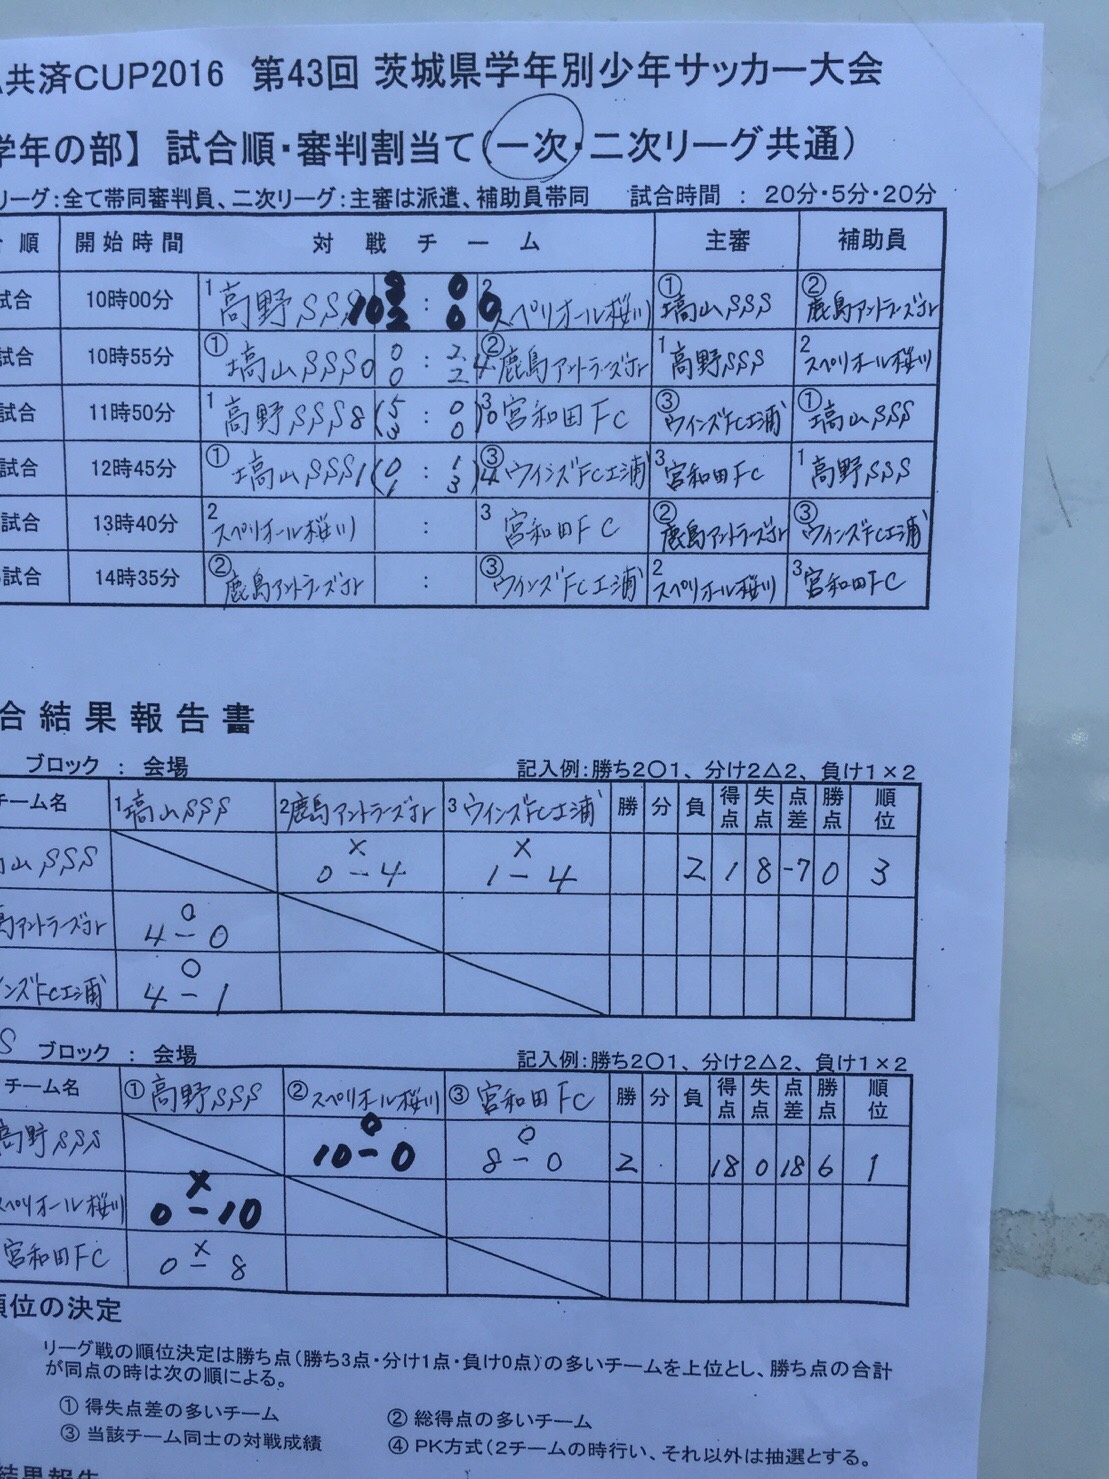 共済CUP2016 第43回 茨城県学年別少年サッカー大会
学年の部】 試合順・審判割当て(一次・二次リーグ共通)
リーグ:全て帯同審判員、二次リーグ:主審は派遣、補助員帯同 試合時間 : 20分・5分・20分
順 開始時間 対戦チーム 主審 補助員
試合 10時00分 1 高野SSS 10 2 : 0 0 2 スペリオール桜川 ①塙山SSS ②鹿島アントラーズJr
試合 10時55分 ①塙山SSS 0 0 0 : 2 2 4 ②鹿島アントラーズJr 1 高野SSS 2 スペリオール桜川
試合 11時50分 1 高野SSS 8 (5 3 : 0 0) 0 3 宮和田FC ③ウインズFC土浦 ①塙山SSS
試合 12時45分 ①塙山SSS 1 (0 1 : 1 3) 4 ③ウインズFC土浦 3 宮和田FC 1 高野SSS
試合 13時40分 2 スペリオール桜川 : 3 宮和田FC ②鹿島アントラーズJr ③ウインズFC土浦
試合 14時35分 ②鹿島アントラーズJr : ③ウインズFC土浦 2 スペリオール桜川 3 宮和田FC
合結果報告書
ブロック : 会場 記入例:勝ち2〇1、分け2△2、負け1×2
チーム名 1 塙山SSS 2 鹿島アントラーズJr 3 ウインズFC土浦 勝 分 負 得点 失点 点差 勝点 順位
山SSS × 0-4 × 1-4 2 1 8 -7 0 3
島アントラーズJr 〇 4-0
インズFC土浦 〇 4-1
S ブロック : 会場 記入例:勝ち2〇1、分け2△2、負け1×2
チーム名 ①高野SSS ②スペリオール桜川 ③宮和田FC 勝 分 負 得点 失点 点差 勝点 順位
高野SSS 〇 10-0 〇 8-0 2 18 0 18 6 1
スペリオール桜川 × 0-10
宮和田FC × 0-8
順位の決定
リーグ戦の順位決定は勝ち点(勝ち3点・分け1点・負け0点)の多いチームを上位とし、勝ち点の合計
が同点の時は次の順による。
① 得失点差の多いチーム ② 総得点の多いチーム
③ 当該チーム同士の対戦成績 ④ PK方式(2チームの時行い、それ以外は抽選とする。
結果報告